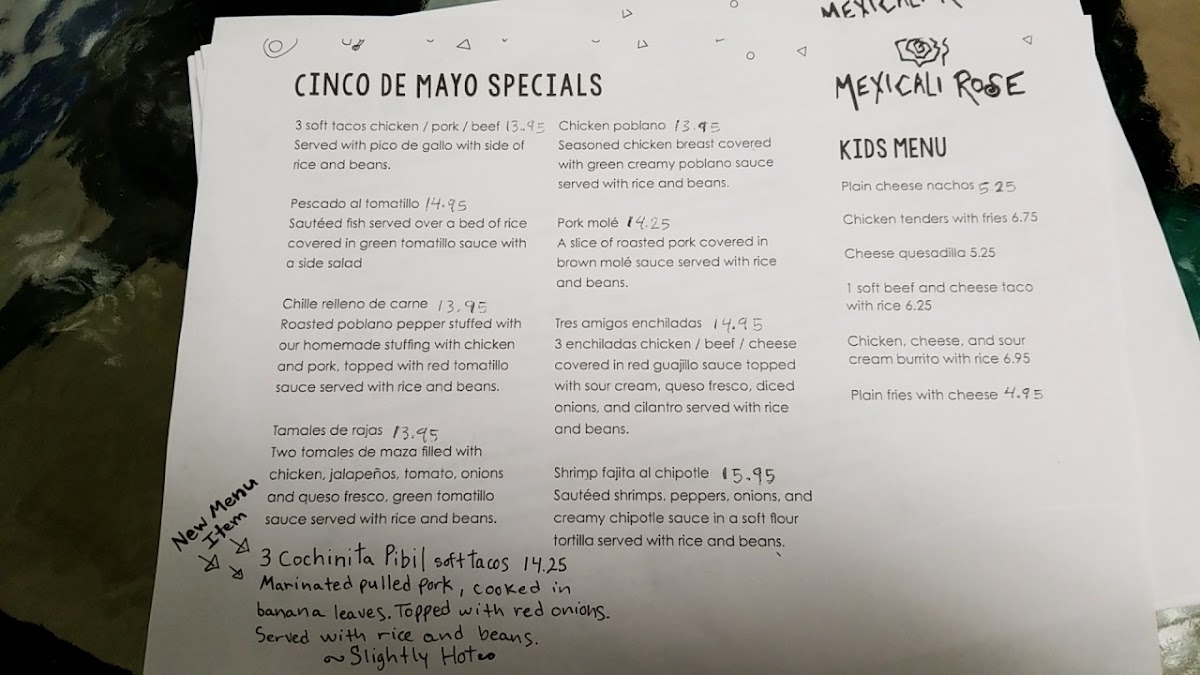 CINCO DE MAYO SPECIALS
3 soft tacos chicken / pork / beef 13.95
Served with pico de gallo with side of
rice and beans.
Pescado al tomatillo 14.95
Sautéed fish served over a bed of rice
covered in green tomatillo sauce with
a side salad
Chille relleno de carne 13.95
Roasted poblano pepper stuffed with
our homemade stuffing with chicken
and pork, topped with red tomatillo
sauce served with rice and beans.
Tamales de rajas 13.95
Two tomales de maza filled with
chicken, jalapeños, tomato, onions
and queso fresco, green tomatillo
sauce served with rice and beans.
New Menu
Item
3 Cochinita Pibil soft tacos 14.25
Marinated pulled pork, cooked in
banana leaves. Topped with red onions.
Served with rice and beans.
~ Slightly Hot
Chicken poblano 13.95
Seasoned chicken breast covered
with green creamy poblano sauce
served with rice and beans.
Pork molé 14.25
A slice of roasted pork covered in
brown molé sauce served with rice
and beans.
Tres amigos enchiladas 14.95
3 enchiladas chicken / beef / cheese
covered in red guajillo sauce topped
with sour cream, queso fresco, diced
onions, and cilantro served with rice
and beans.
Shrimp fajita al chipotle 15.95
Sautéed shrimps, peppers, onions, and
creamy chipotle sauce in a soft flour
tortilla served with rice and beans.
MEXICALI
MEXICALI ROSE
KIDS MENU
Plain cheese nachos 5.25
Chicken tenders with fries 6.75
Cheese quesadilla 5.25
1 soft beef and cheese taco
with rice 6.25
Chicken, cheese, and sour
cream burrito with rice 6.95
Plain fries with cheese 4.95